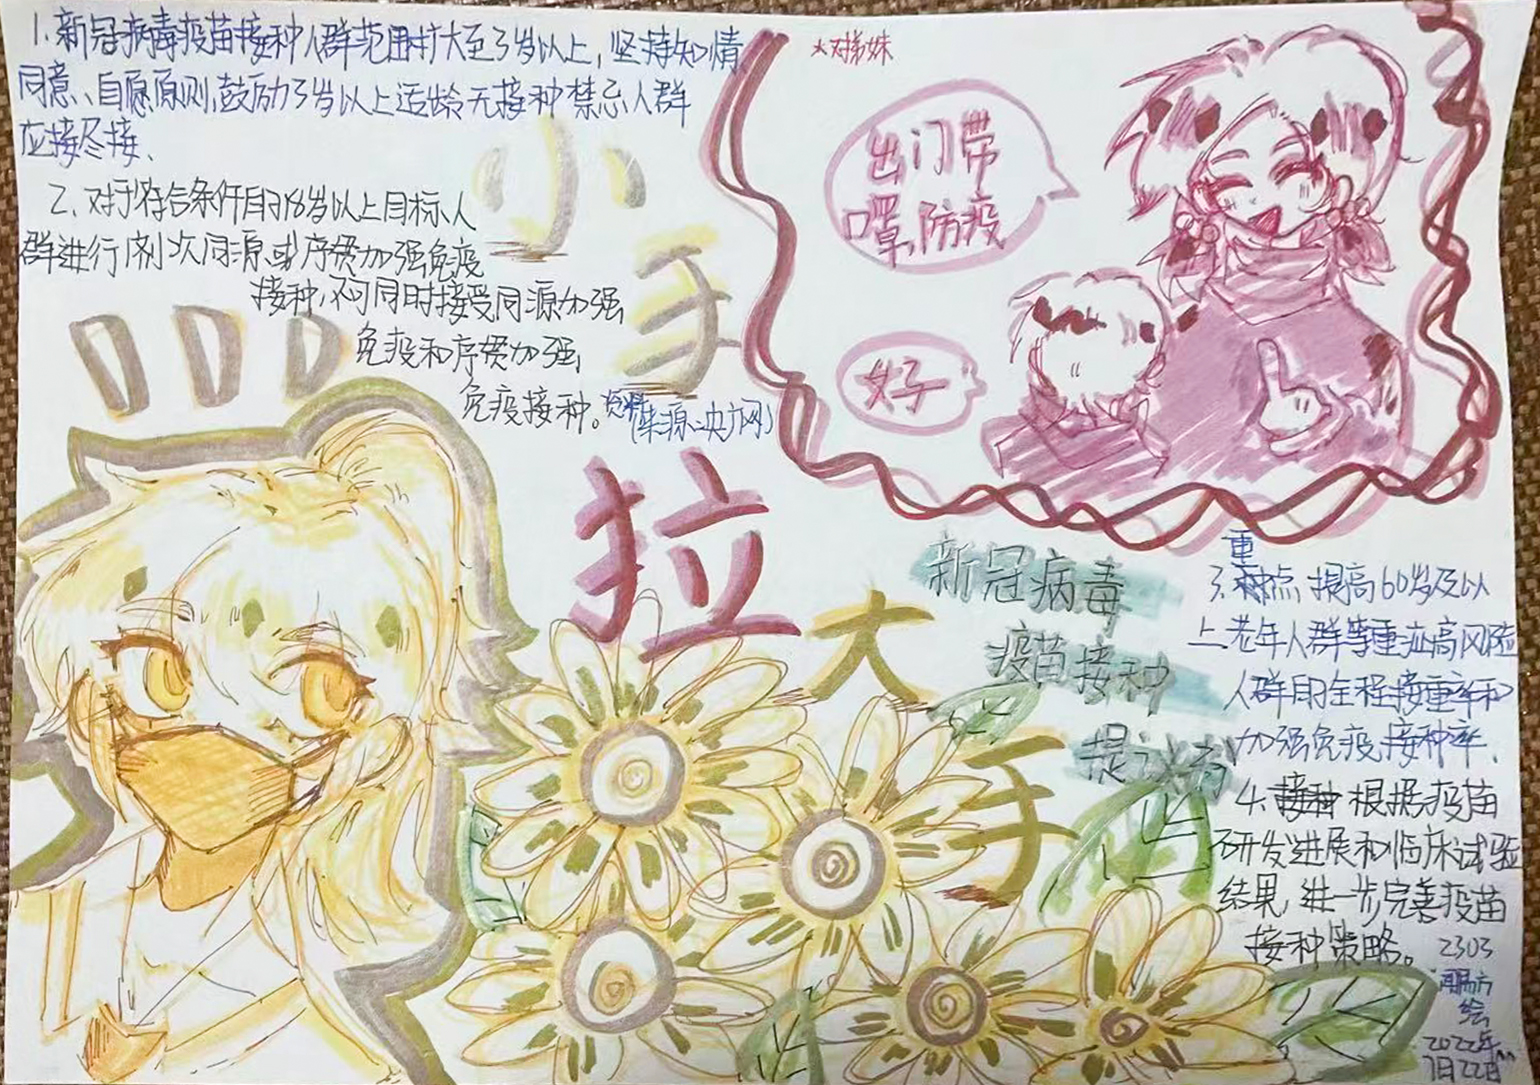 1.新冠病毒疫苗接种人群范围扩大至3岁以上,坚持知情
同意、自愿原则,鼓励3岁以上适龄无接种禁忌人群
应接尽接、
2、对于符合条件的18岁以上目标人
群进行1剂次同源或序贯加强免疫
接种,不可同时接受同源加强
免疫和序贯加强
免疫接种。资料
(来源:央广网)
小
手
拉
大
手
*对姊妹
出门带
口罩,防疫
好
新冠病毒
疫苗接种
提议有
重
3.点提高60岁及以
上老年人群等重症高风险
人群的全程接重率和
加强免疫接种率、
4.接种根据疫苗
研发进展和临床试验
结果,进一步完善疫苗
接种策略。
2303
绘
2022年
1日22日